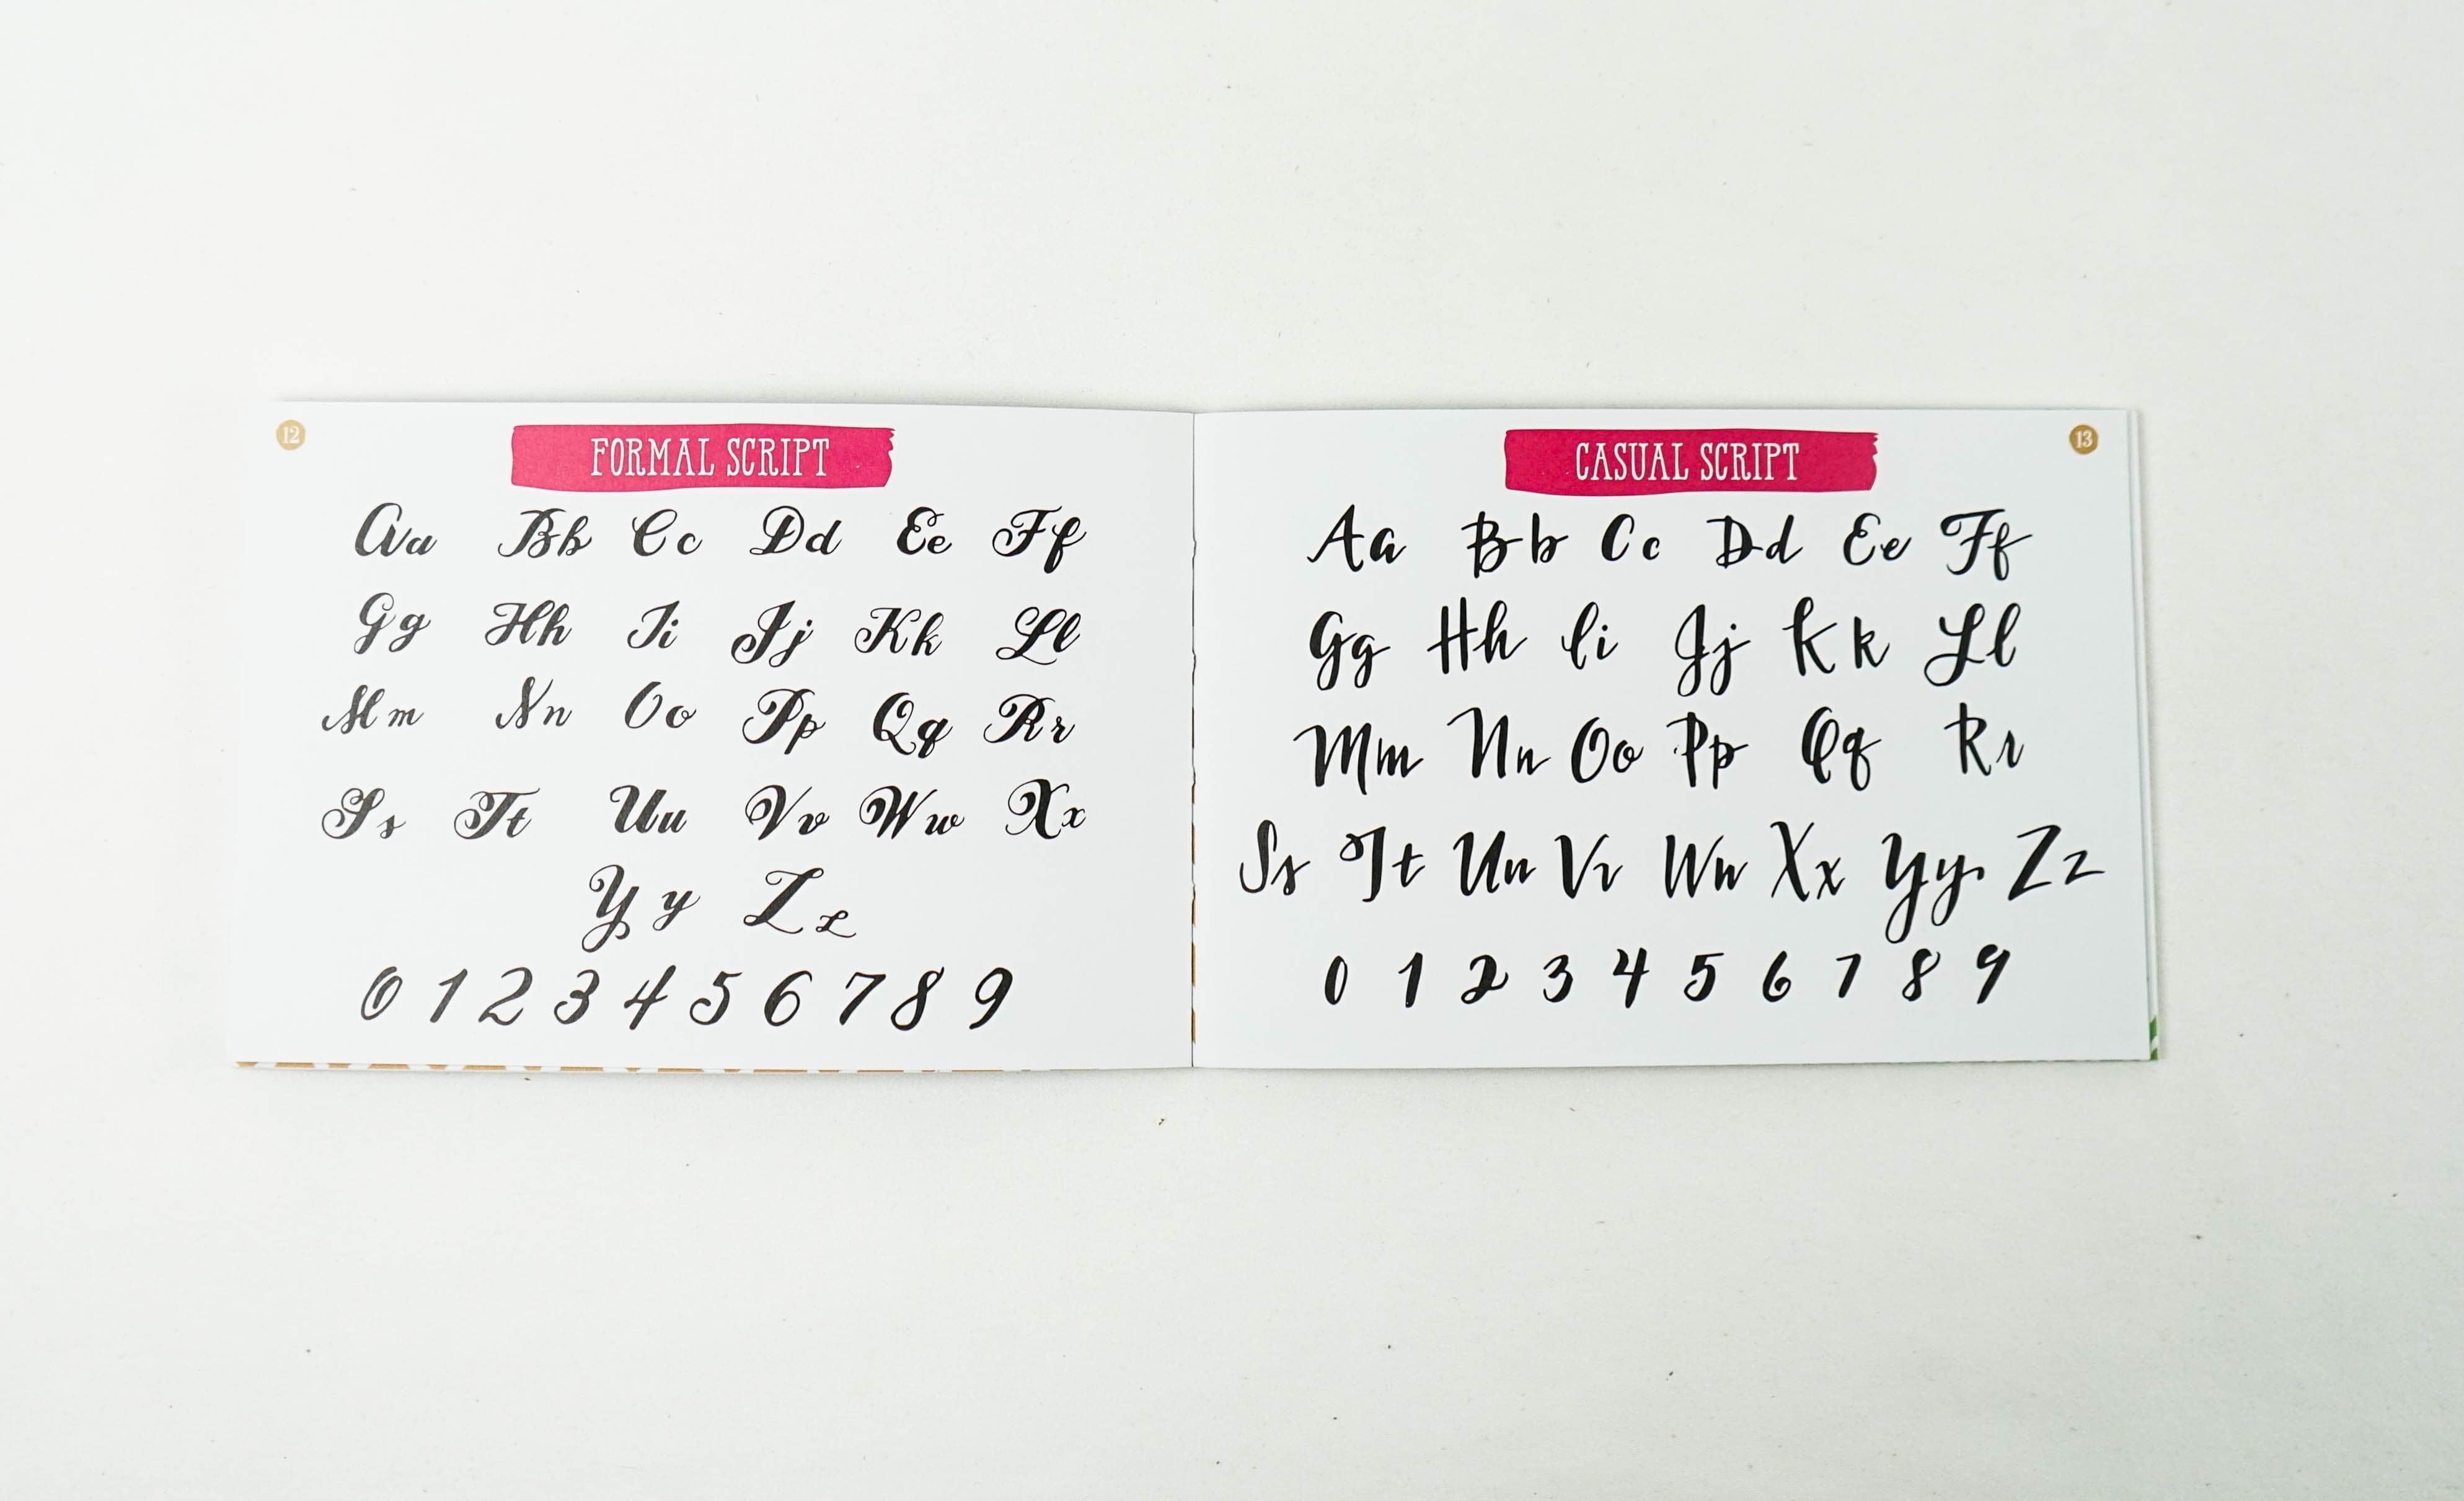 12
FORMAL SCRIPT
Aa Bb Cc Dd Ee Ff
Gg Hh Ii Jj Kk Ll
Mm Nn Oo Pp Qq Rr
Ss Tt Uu Vv Ww Xx
Yy Zz
0 1 2 3 4 5 6 7 8 9
13
CASUAL SCRIPT
Aa Bb Cc Dd Ee Ff
Gg Hh Ii Jj Kk Ll
Mm Nn Oo Pp Qq Rr
Ss Tt Uu Vv Ww Xx Yy Zz
0 1 2 3 4 5 6 7 8 9